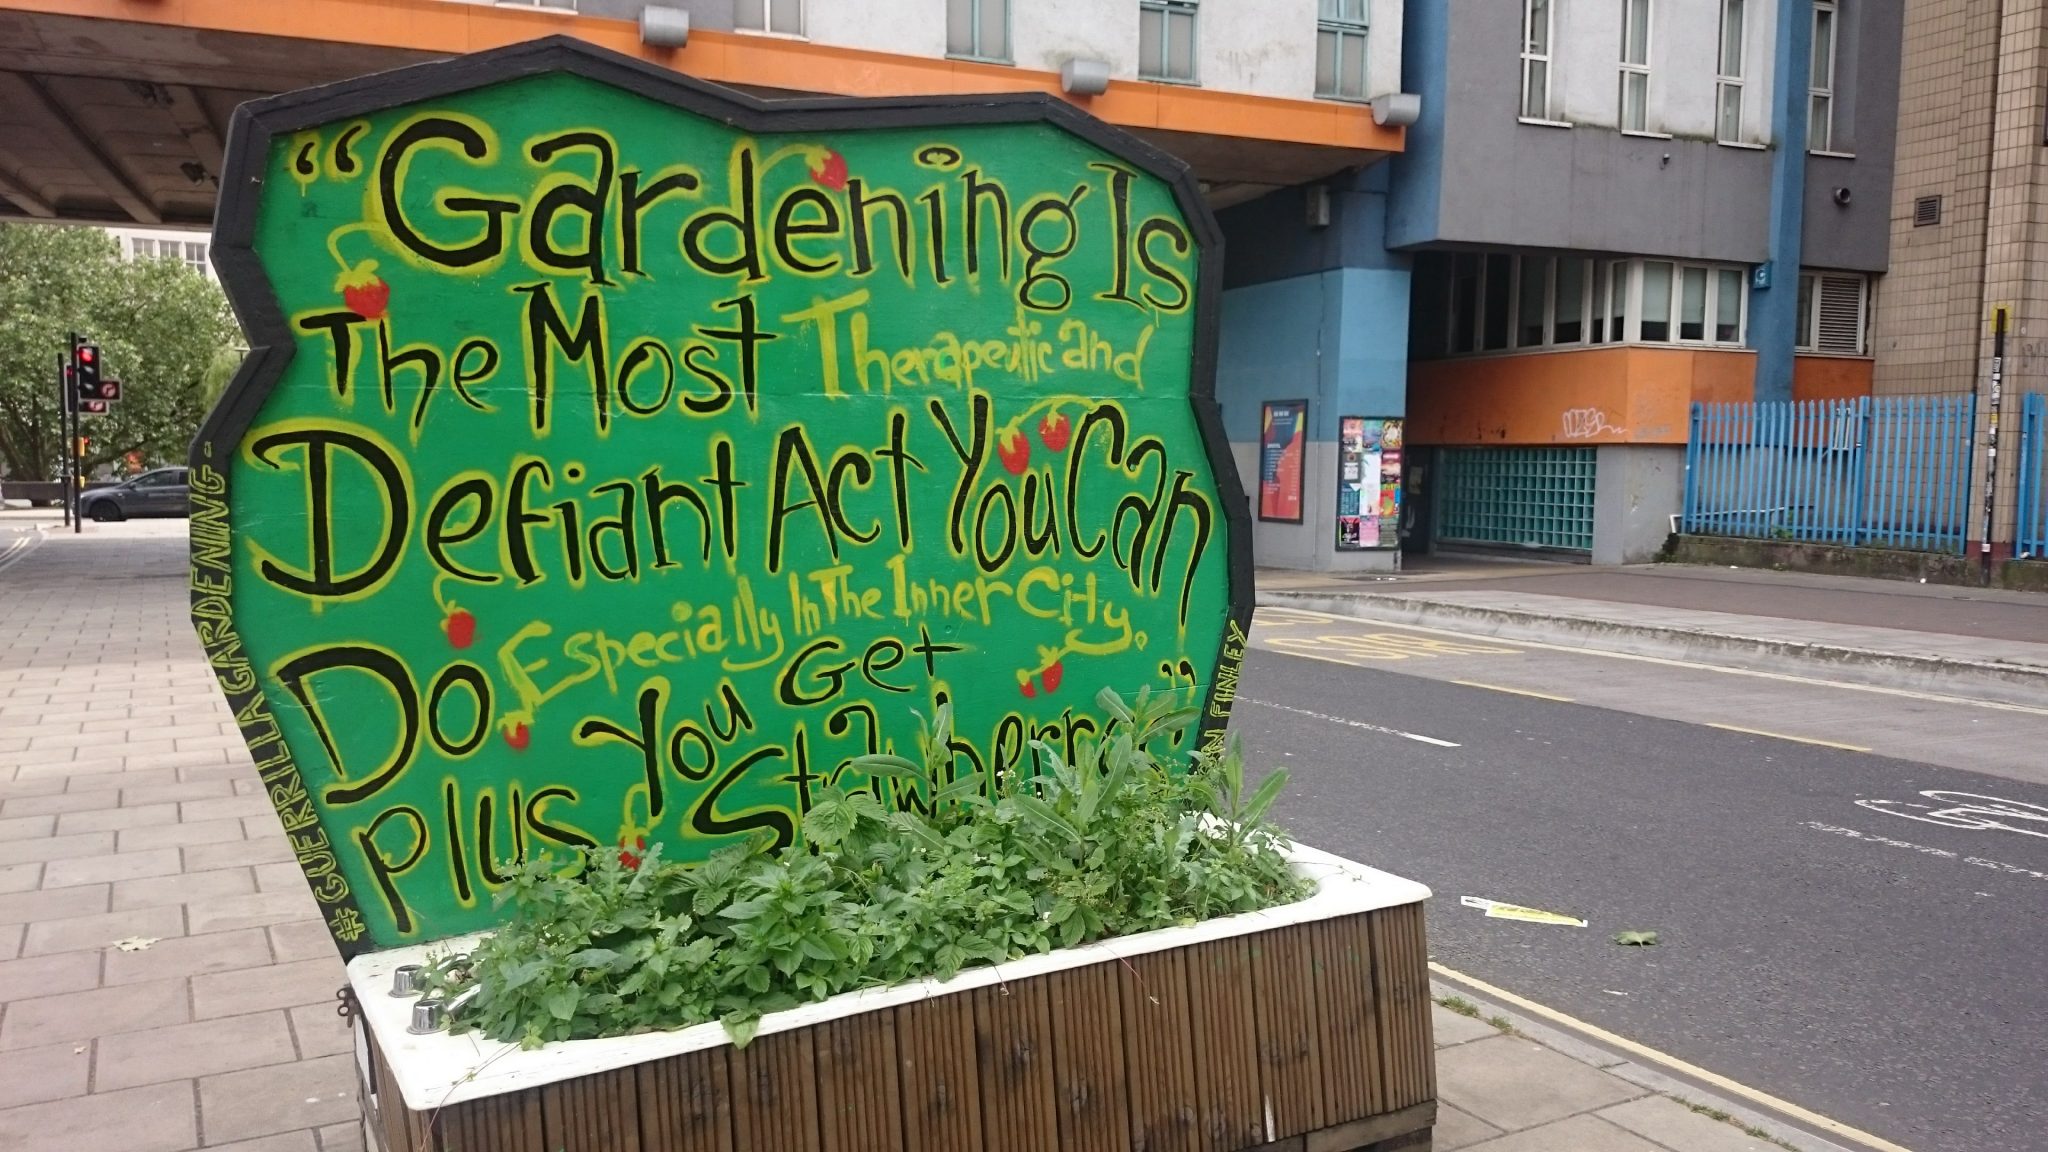 “Gardening Is
The Most Therapeutic and
Defiant Act You Can
Do Especially In The Inner City.
Plus You Get
Strawberries”
#GUERRILLA GARDENING -
FINLEY